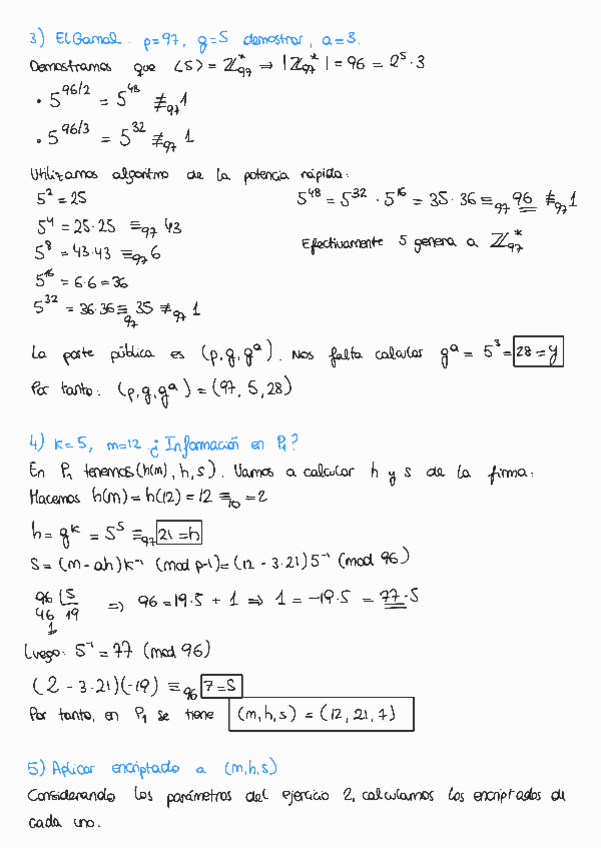 3) ElGamal. p=97, g=5 demostrar, a=3.
Demostramos que ⟨5⟩ = ℤ₉₇* ⇒ |ℤ₉₇*| = 96 = 2⁵·3
• 5^{96/2} = 5⁴⁸ ≢₉₇ 1
• 5^{96/3} = 5³² ≢₉₇ 1
Utilizamos algoritmo de la potencia rápida:
5² = 25
5⁴ = 25·25 ≡₉₇ 43
5⁸ = 43·43 ≡₉₇ 6
5¹⁶ = 6·6 = 36
5³² = 36·36 ≡₉₇ 35 ≢₉₇ 1
5⁴⁸ = 5³² · 5¹⁶ = 35·36 ≡₉₇ 96 ≢₉₇ 1
Efectivamente 5 genera a ℤ₉₇*
La parte pública es (p,g,gᵃ). Nos falta calcular gᵃ = 5³ = 28 = y
Por tanto: (p,g,gᵃ) = (97, 5, 28)
4) k=5, m=12 ¿Información en P₁?
En P₁ tenemos (h(m), h, s). Vamos a calcular h y s de la firma:
Hacemos h(m) = h(12) = 12 ≡₁₀ = 2
h = gᵏ = 5⁵ ≡₉₇ 21 = h
S = (m - ah)k⁻¹ (mod p-1) = (12 - 3·21)5⁻¹ (mod 96)
96 |5
46 19
1
⇒ 96 = 19·5 + 1 ⇒ 1 = -19·5 = 77·5
Luego: 5⁻¹ = 77 (mod 96)
(2 - 3·21)(-19) ≡₉₆ 7 = S
Por tanto, en P₁ se tiene (m,h,s) = (12, 21, 7)
5) Aplicar encriptado a (m,h,s)
Considerando los parámetros del ejercicio 2, calculamos los encriptados de
cada uno.